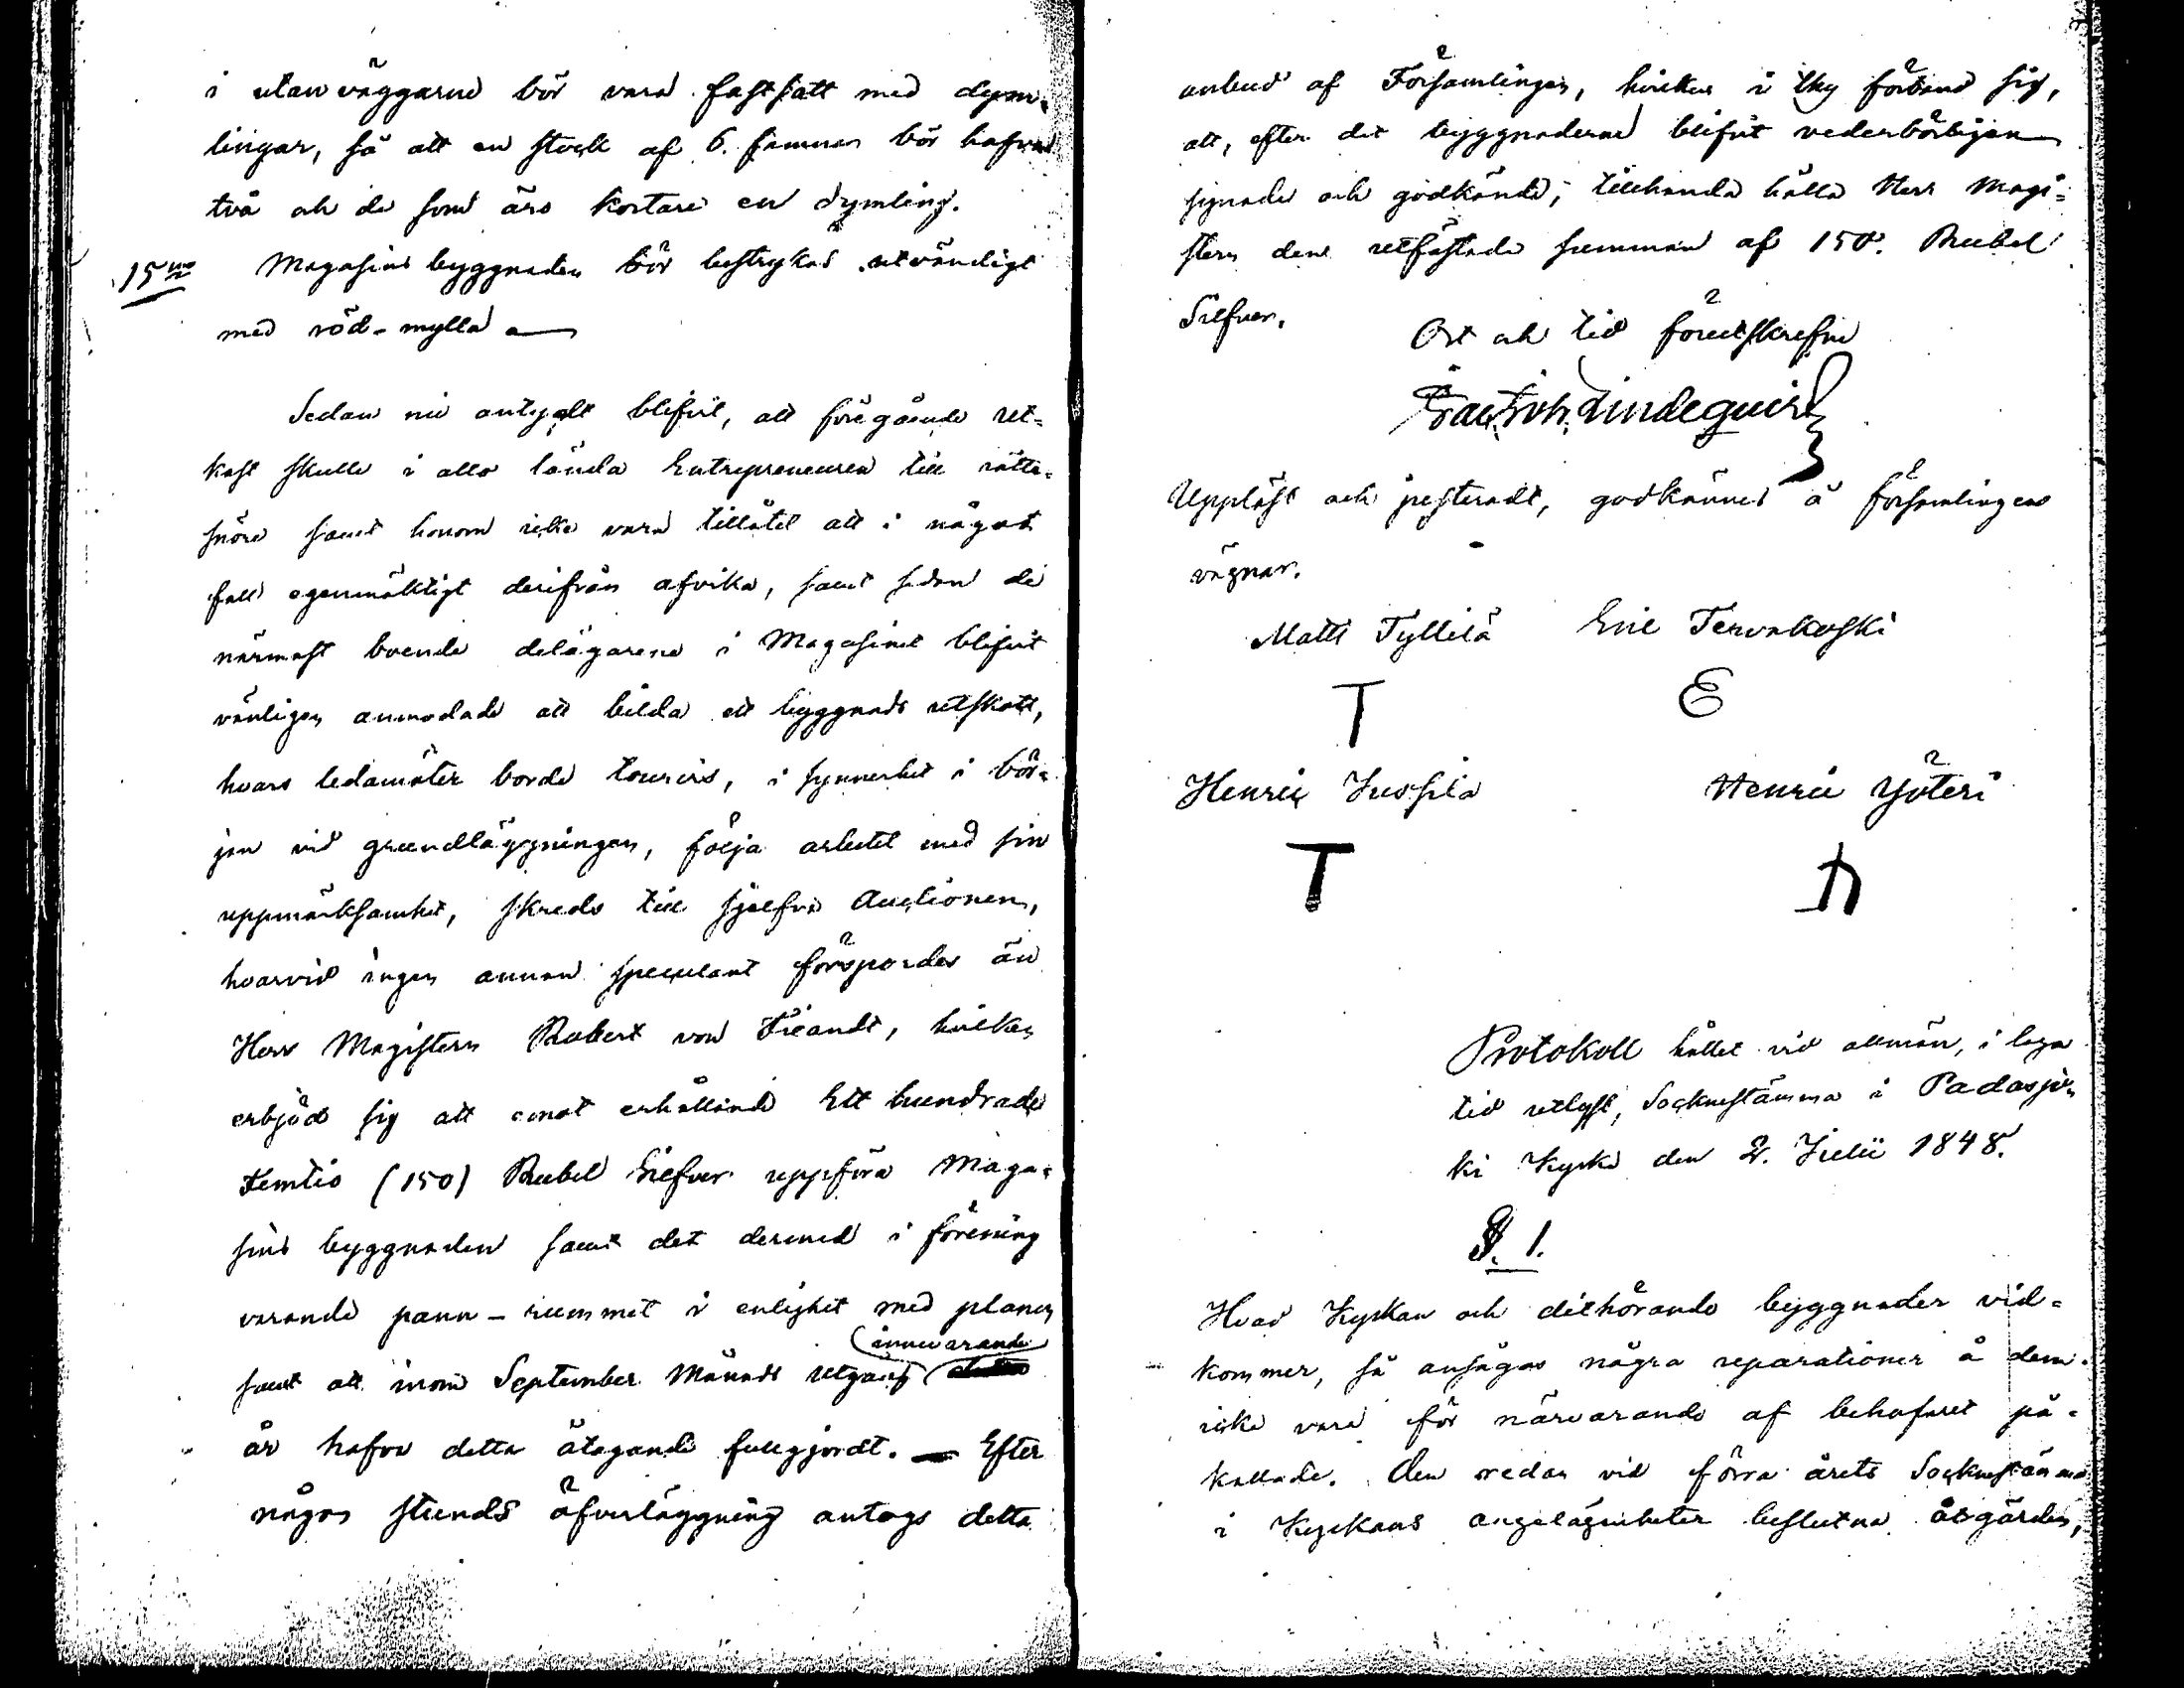 i utanväggarne bör vara fastsatt med dym-
lingar, så att en stock af 6. famnar bör hafva
två och de som äro kortare en dymling.
15no Magasins byggnaden bör bestrykas utvändigt
med röd-mylla
Sedan nu antydt blifvit, att föregående ut-
kast skulle i allo lända Entrepreneuren till rätte-
snöre samt honom icke vara tillåtet att i något
fall egenmäktigt derifrån afvika, samt sedan de
närmast boende delägarene i Magasinet blifvit
vänligen anmodade att bilda ett byggnads utskott,
hvars ledamöter borde tourvis, i synnerhet i bör-
jan vid grundläggningen, följa arbetet med sin
uppmärksamhet, skreds till sjelfva Auctionen,
hvarvid ingen annan speculant försporders än
Herr Magistern Robert von Fieandt, hvilken
erbjöd sig att emot erhållande Ett hundrade
Femtio (150) Rubel Silfver uppföra Maga-
sins byggnaden samt det dermed i förening
varande pann-rummet i enlighet med planen
innevarande
samt att inom September Månads utgang
år hafva detta åtagande fullgjordt. Efter
någon stunds öfverläggning antogs detta
anbud af Församlingen, hvilken i thy förband sig,
att, efter det byggnaderne blifvit vederbörligen
synade och godkände, tillhanda hålla Herr Magi-
stern den utfästade summan af 150. Rubel
Silfver.
Ort och tid förutskrefne
Isac Joh. Lindequist
Uppläst och justeradt, godkännes å församlingens
vägnar.
Matti Tyllilä Eric Tervakoski
T E
Henric Jussila Henric Yöteri
T
Protokoll hållet vid allmän, i laga
tid utlyst, Socknestämma i Padasjo-
ki Kyrka den 2. Julii 1848.
§. 1.
Hvad Kyrkan och dithörande byggnader vid-
kommer, så ansågos några reparationer å dem
icke vara för närvarande af behofvet på-
kallade. Den redan vid förra årets Socknestämma
i Kyrkans angelägenheter beslutna åtgärden,